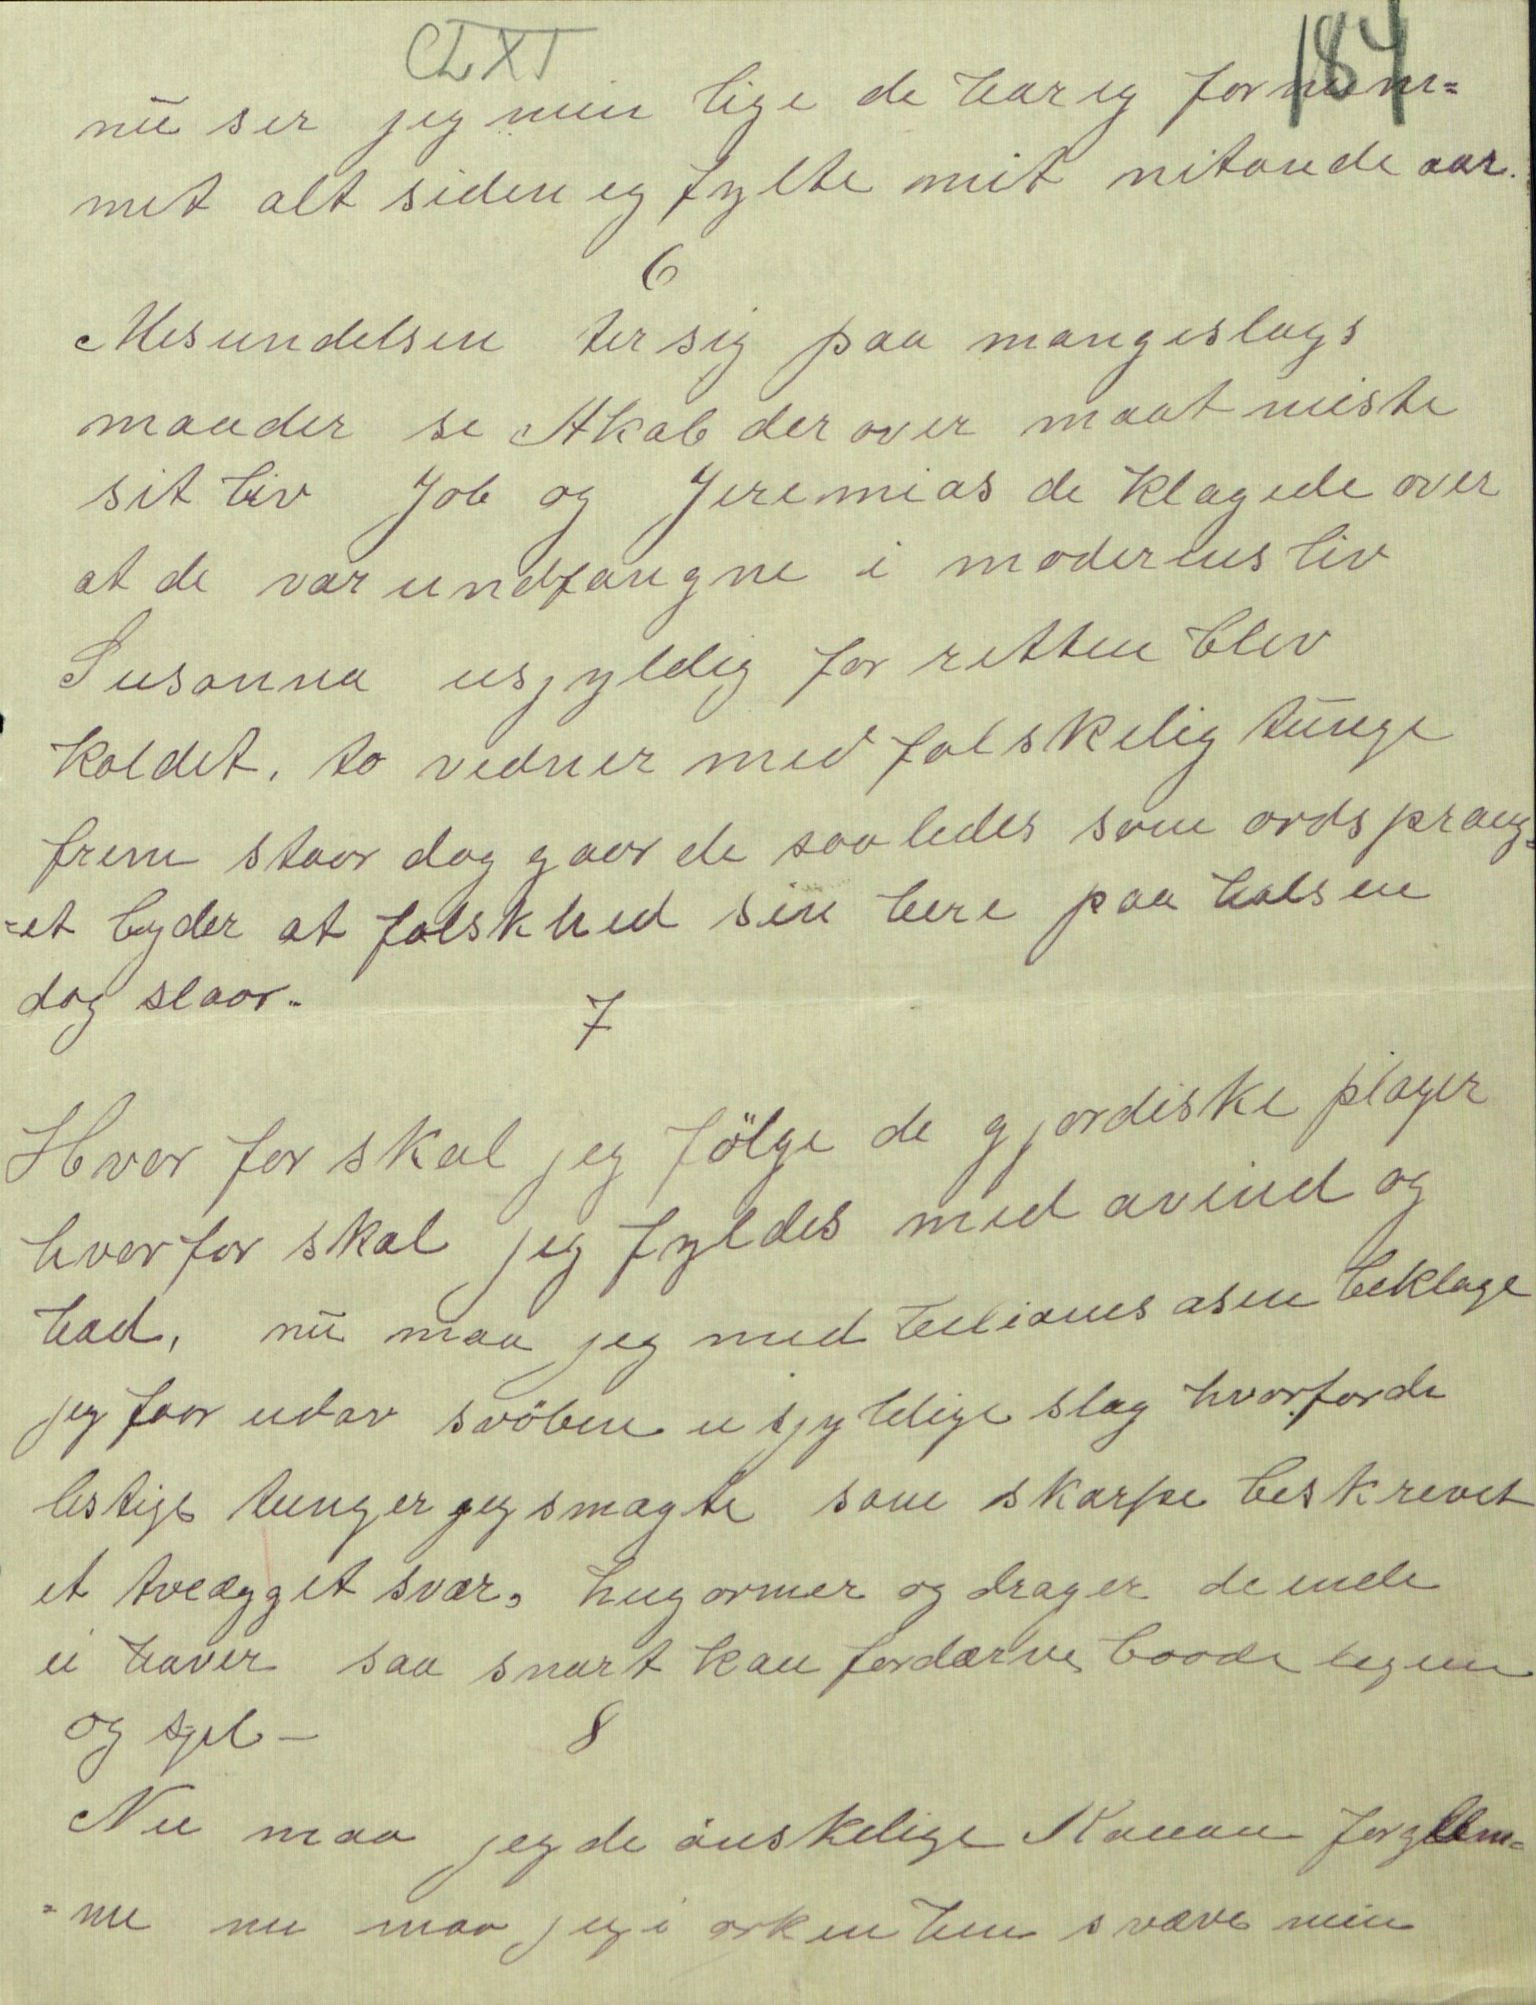 CLXI 184
nū ser jeg min lige de har eg fornem=
met alt siden eg fylte mit nitande aar.
6
Mesundelsen ter sig paa mangeslags
maader se Akab derover maat miste
sit liv Job og Jeremias de klagede over
at de var undfangne i moderens liv
Susanna usjyldig for retten blev
kaldet. to vedner med falskelig tūnge
frem staar dog gaar de saaledes som ordsprang=
=et lyder at falskhed sin here paa halsen
dog slaar.
7
Hvor for skal jeg fölge de gjordiske plager
hvorfor skal jeg fyldes med avind og
had, nū maa jeg med beliams asen beklage
jeg faar udav svöben usjyldige slag hvorforde
lestige tunger jeg smagte som skarpe beskrevet
et tveægget svær, hugormer og drager de ende
ei haver saa snart kan fordærve baade legeme
og sjel -
8
Nu maa jeg de önskelige Kanan forglem=
=me nu maa jeg i örken hen sväve min